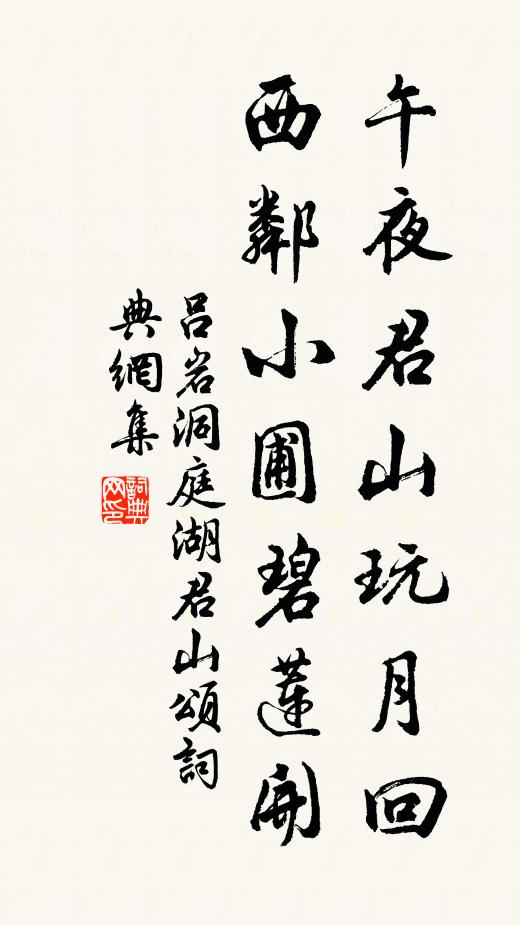 午夜君山玩月回
西鄰小圃碧蓮開
吕岩洞庭湖君山頌詞
典網集
詞典网印